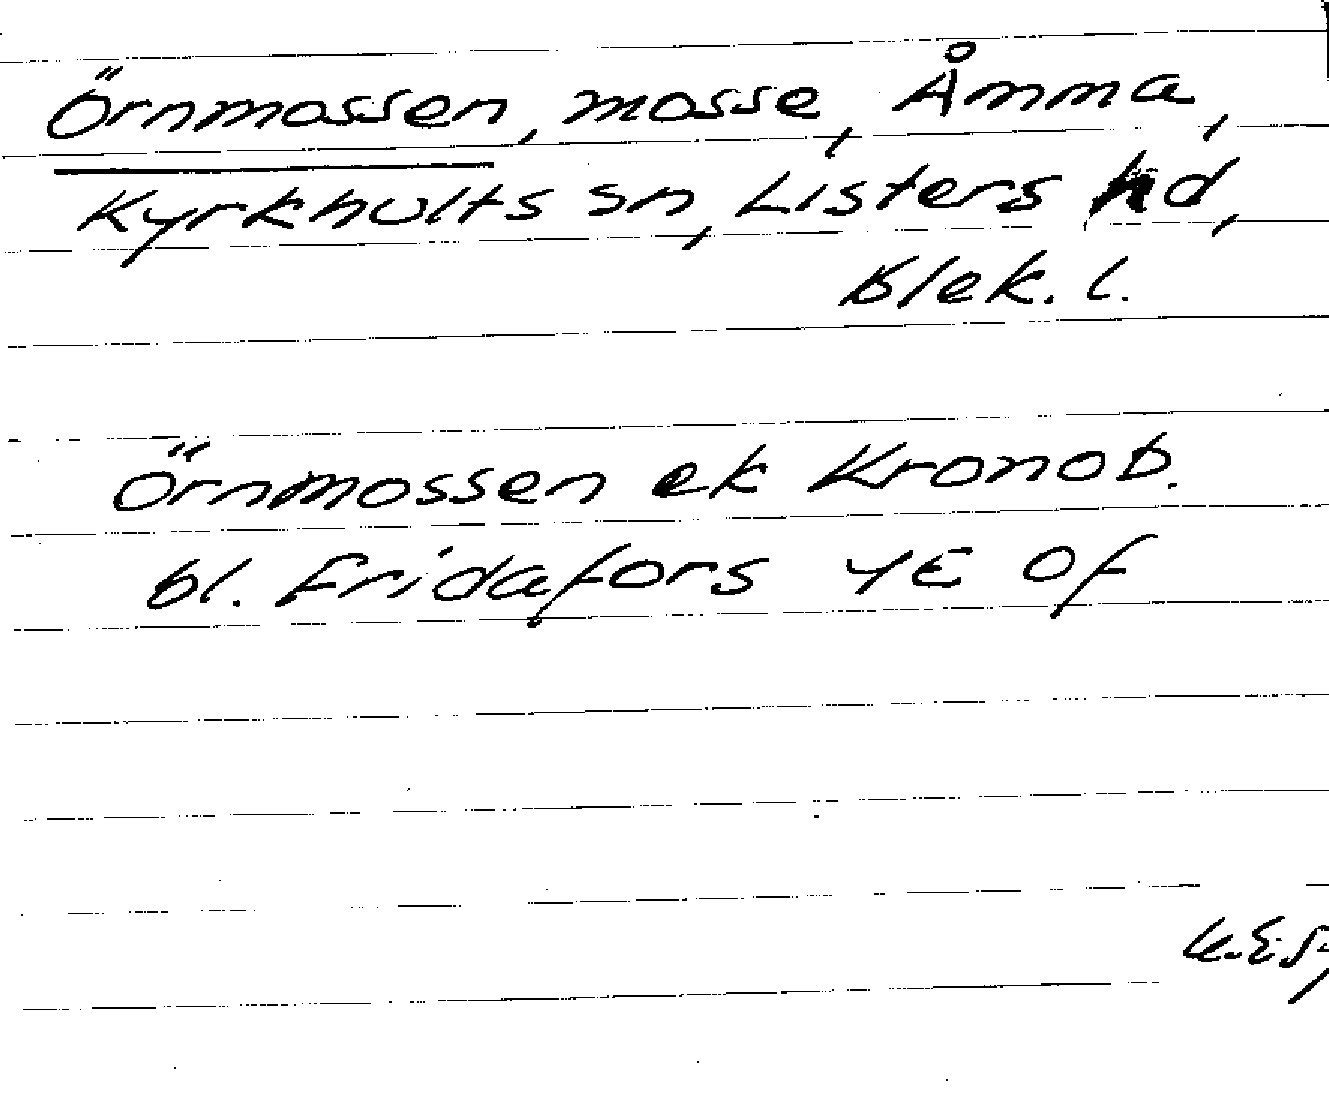 Örnmossen, mosse, Åmma,
Kyrkhults sn, Listers hd,
Blek. l.
Örnmossen ek Kronob.
bl. Fridafors 4E Of